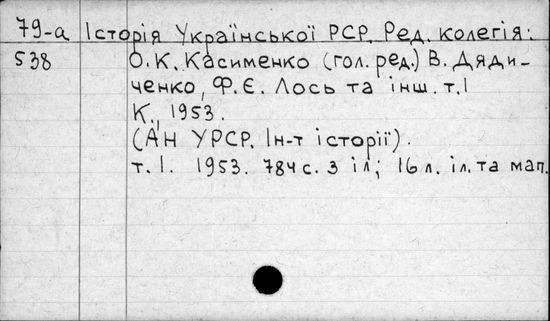 79-а Історія Української РСР. Ред. колегія:
538 О. К. Касименко (гол. ред.) В. Дяди-
ченко, Ф. Є. Лось та інш. т. I
К., 1953.
(АН УРСР. Ін-т історії).
т. I. 1953. 784 с. з іл; 16 л. іл. та мап.